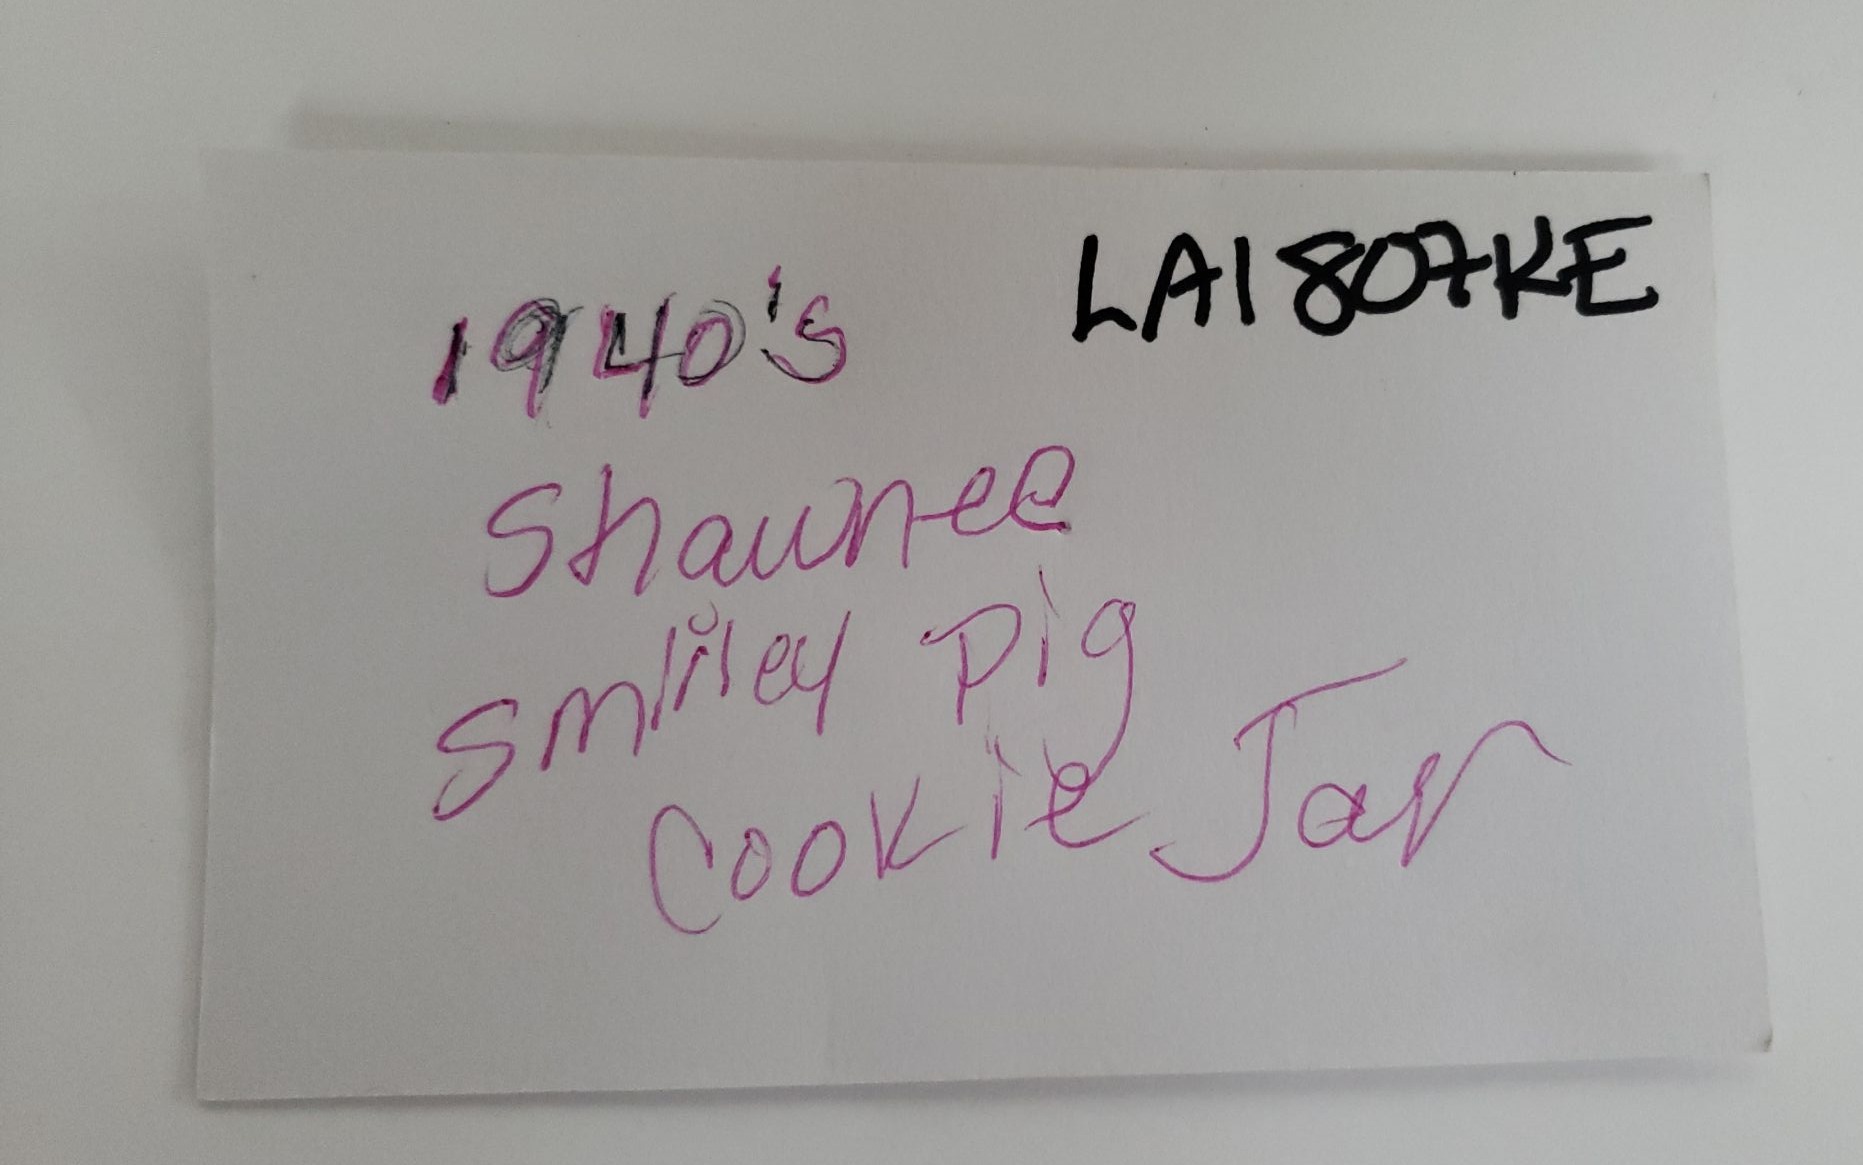 LA1807KE
1940's
Shawnee
Smiley Pig
Cookie Jar